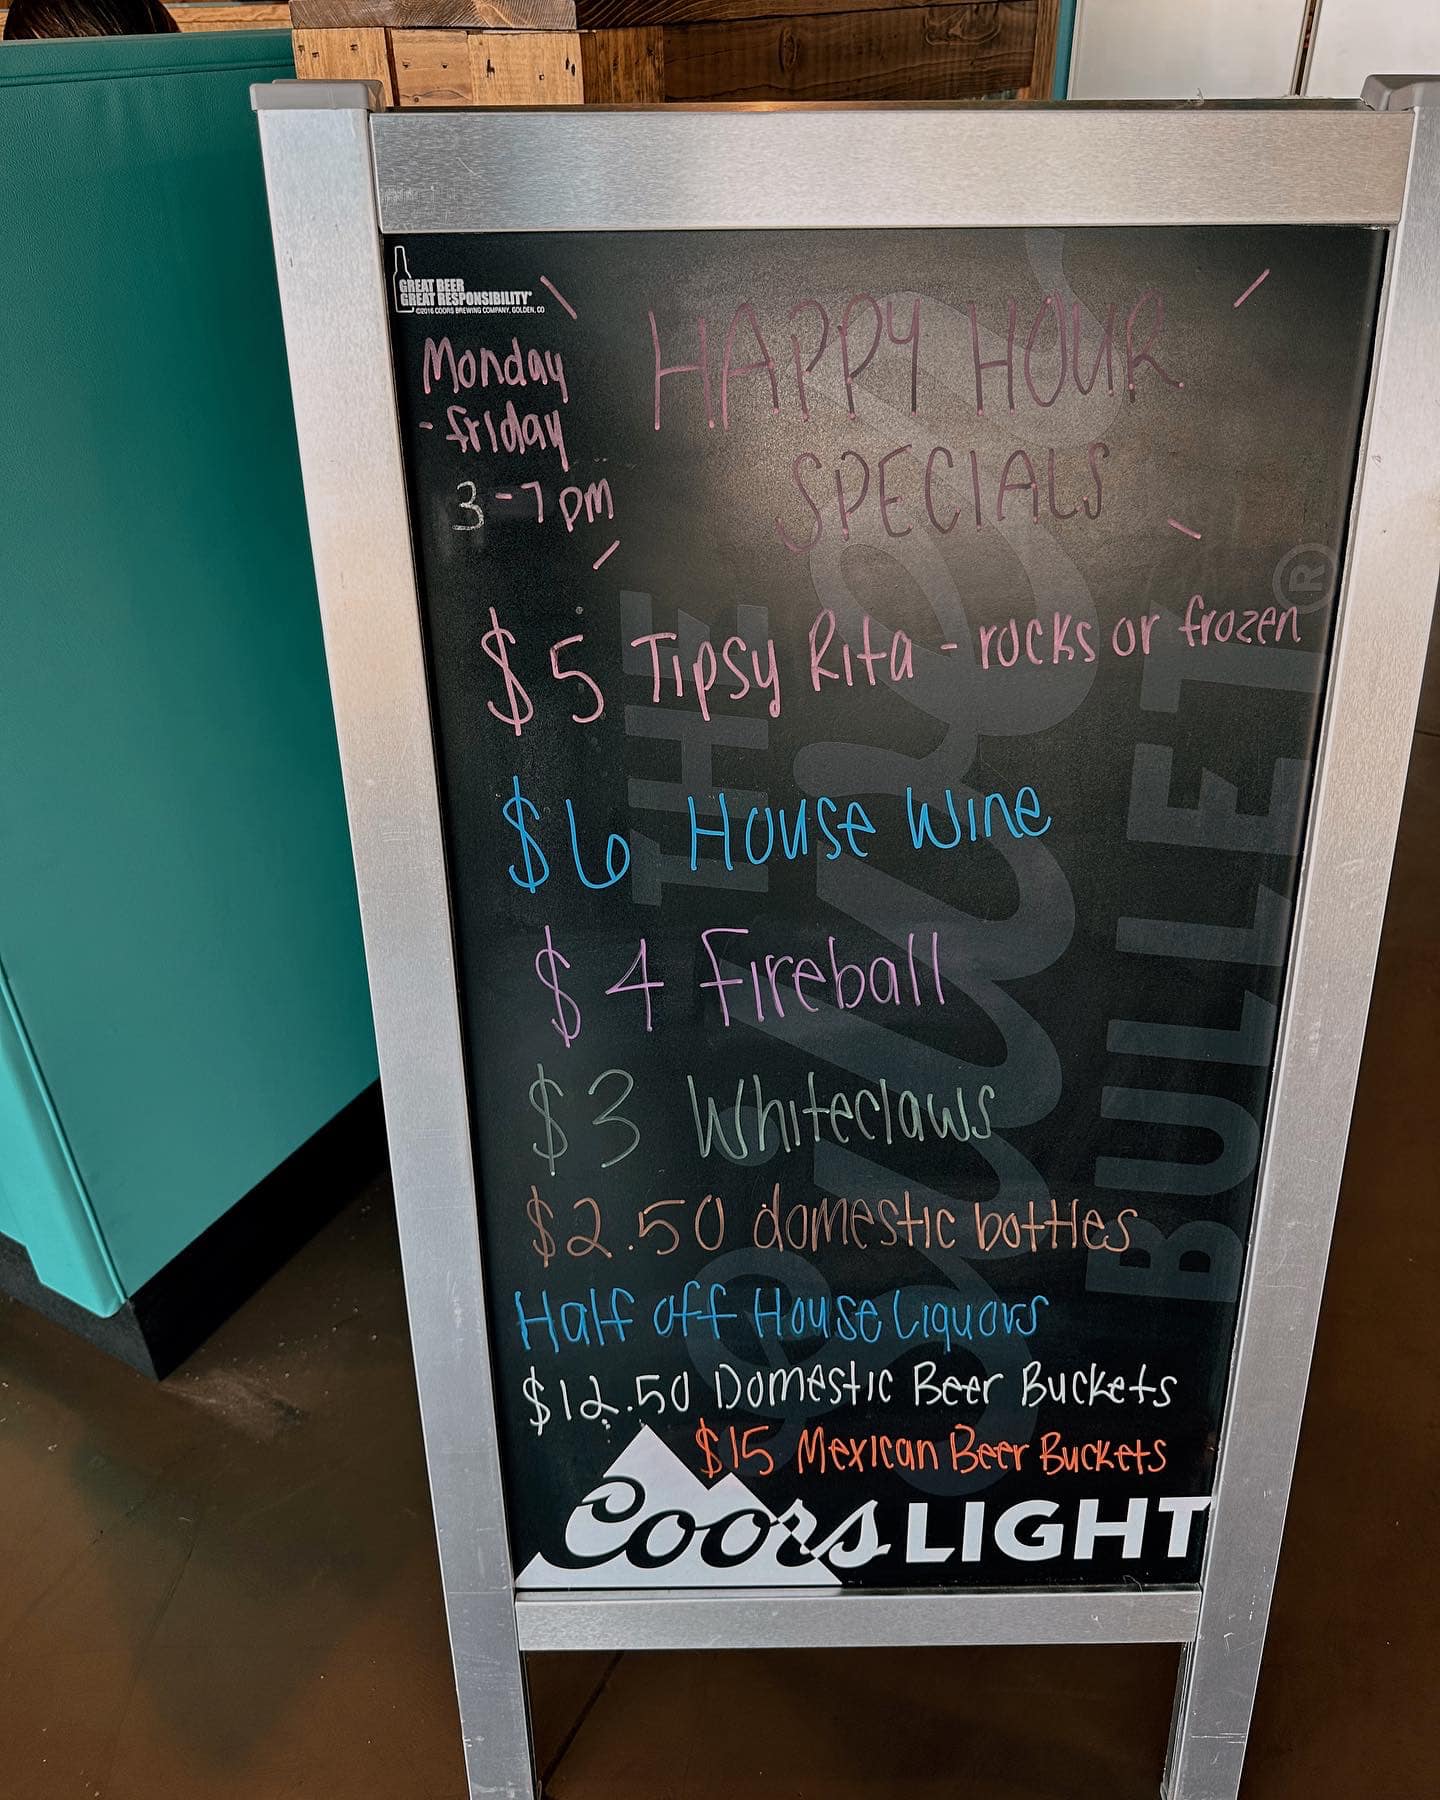 GREAT BEER
GREAT RESPONSIBILITY®
©2016 COORS BREWING COMPANY, GOLDEN, CO
Monday
- friday
3-7pm
HAPPY HOUR
SPECIALS
$5 Tipsy Rita - rocks or frozen
$6 House Wine
$4 Fireball
$3 Whiteclaws
$2.50 domestic bottles
Half off House Liquors
$12.50 Domestic Beer Buckets
$15 Mexican Beer Buckets
THE
Silver
BULLET®
Coors LIGHT